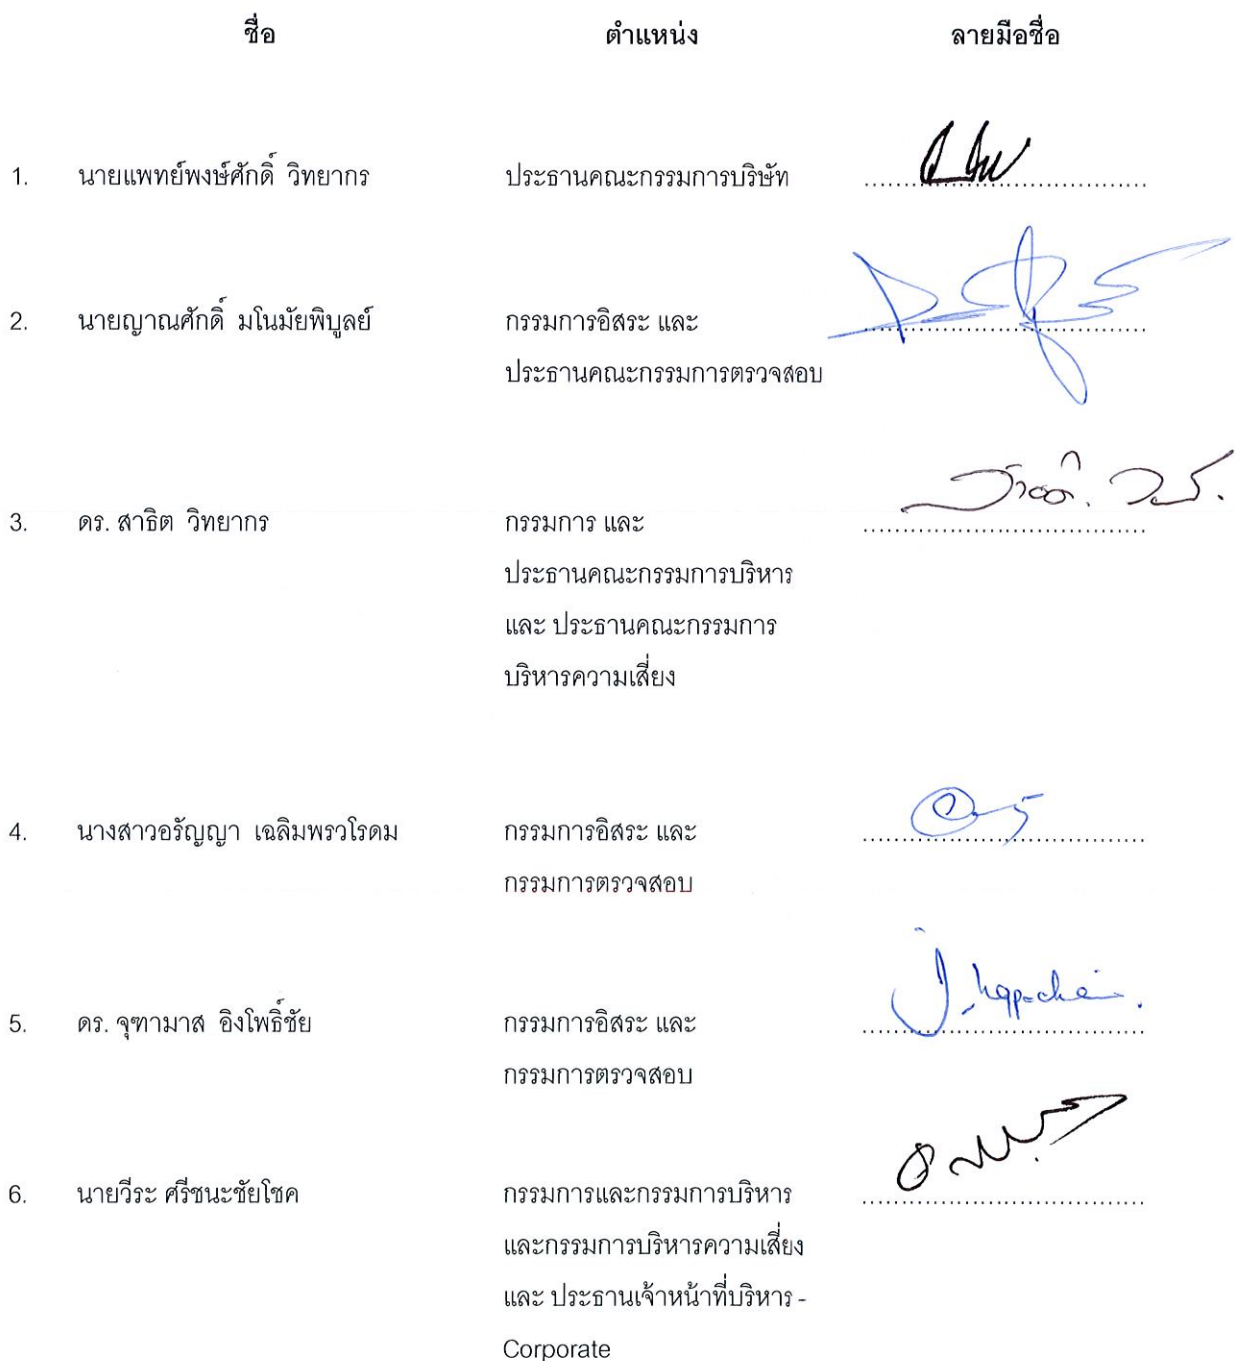 ชื่อ ตำแหน่ง ลายมือชื่อ
1. นายแพทย์พงษ์ศักดิ์ วิทยากร ประธานคณะกรรมการบริษัท
2. นายญาณศักดิ์ มโนมัยพิบูลย์ กรรมการอิสระ และ
ประธานคณะกรรมการตรวจสอบ
3. ดร. สาธิต วิทยากร กรรมการ และ
ประธานคณะกรรมการบริหาร
และ ประธานคณะกรรมการ
บริหารความเสี่ยง
4. นางสาวอรัญญา เฉลิมพรวโรดม กรรมการอิสระ และ
กรรมการตรวจสอบ
5. ดร. จุฑามาส อิงโพธิ์ชัย กรรมการอิสระ และ
กรรมการตรวจสอบ
6. นายวีระ ศรีชนะชัยโชค กรรมการและกรรมการบริหาร
และกรรมการบริหารความเสี่ยง
และ ประธานเจ้าหน้าที่บริหาร -
Corporate